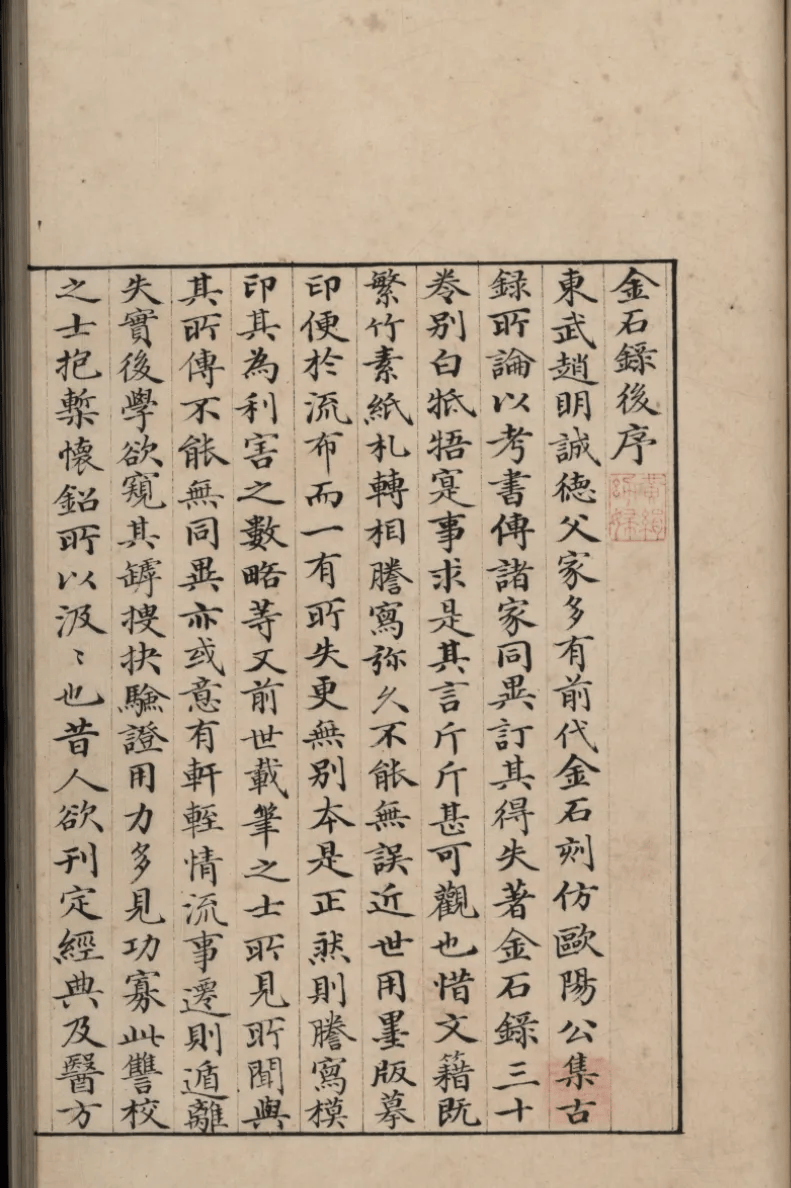 金石錄後序
東武趙明誠德父家多有前代金石刻仿歐陽公集古
錄所論以考書傳諸家同異訂其得失著金石錄三十
卷別白牴牾寔事求是其言斤斤甚可觀也惜文籍既
繁竹素紙札轉相謄寫弥久不能無誤近世用墨版摹
印便於流布而一有所失更無別本是正然則謄寫模
印其為利害之數略等又前世載筆之士所見所聞與
其所傳不能無同異亦或意有軒輊情流事遷則遁離
失實後學欲窺其罅搜抉驗證用力多見功寡此讐校
之士抱槧懷鉛所以汲〻也昔人欲刊定經典及醫方